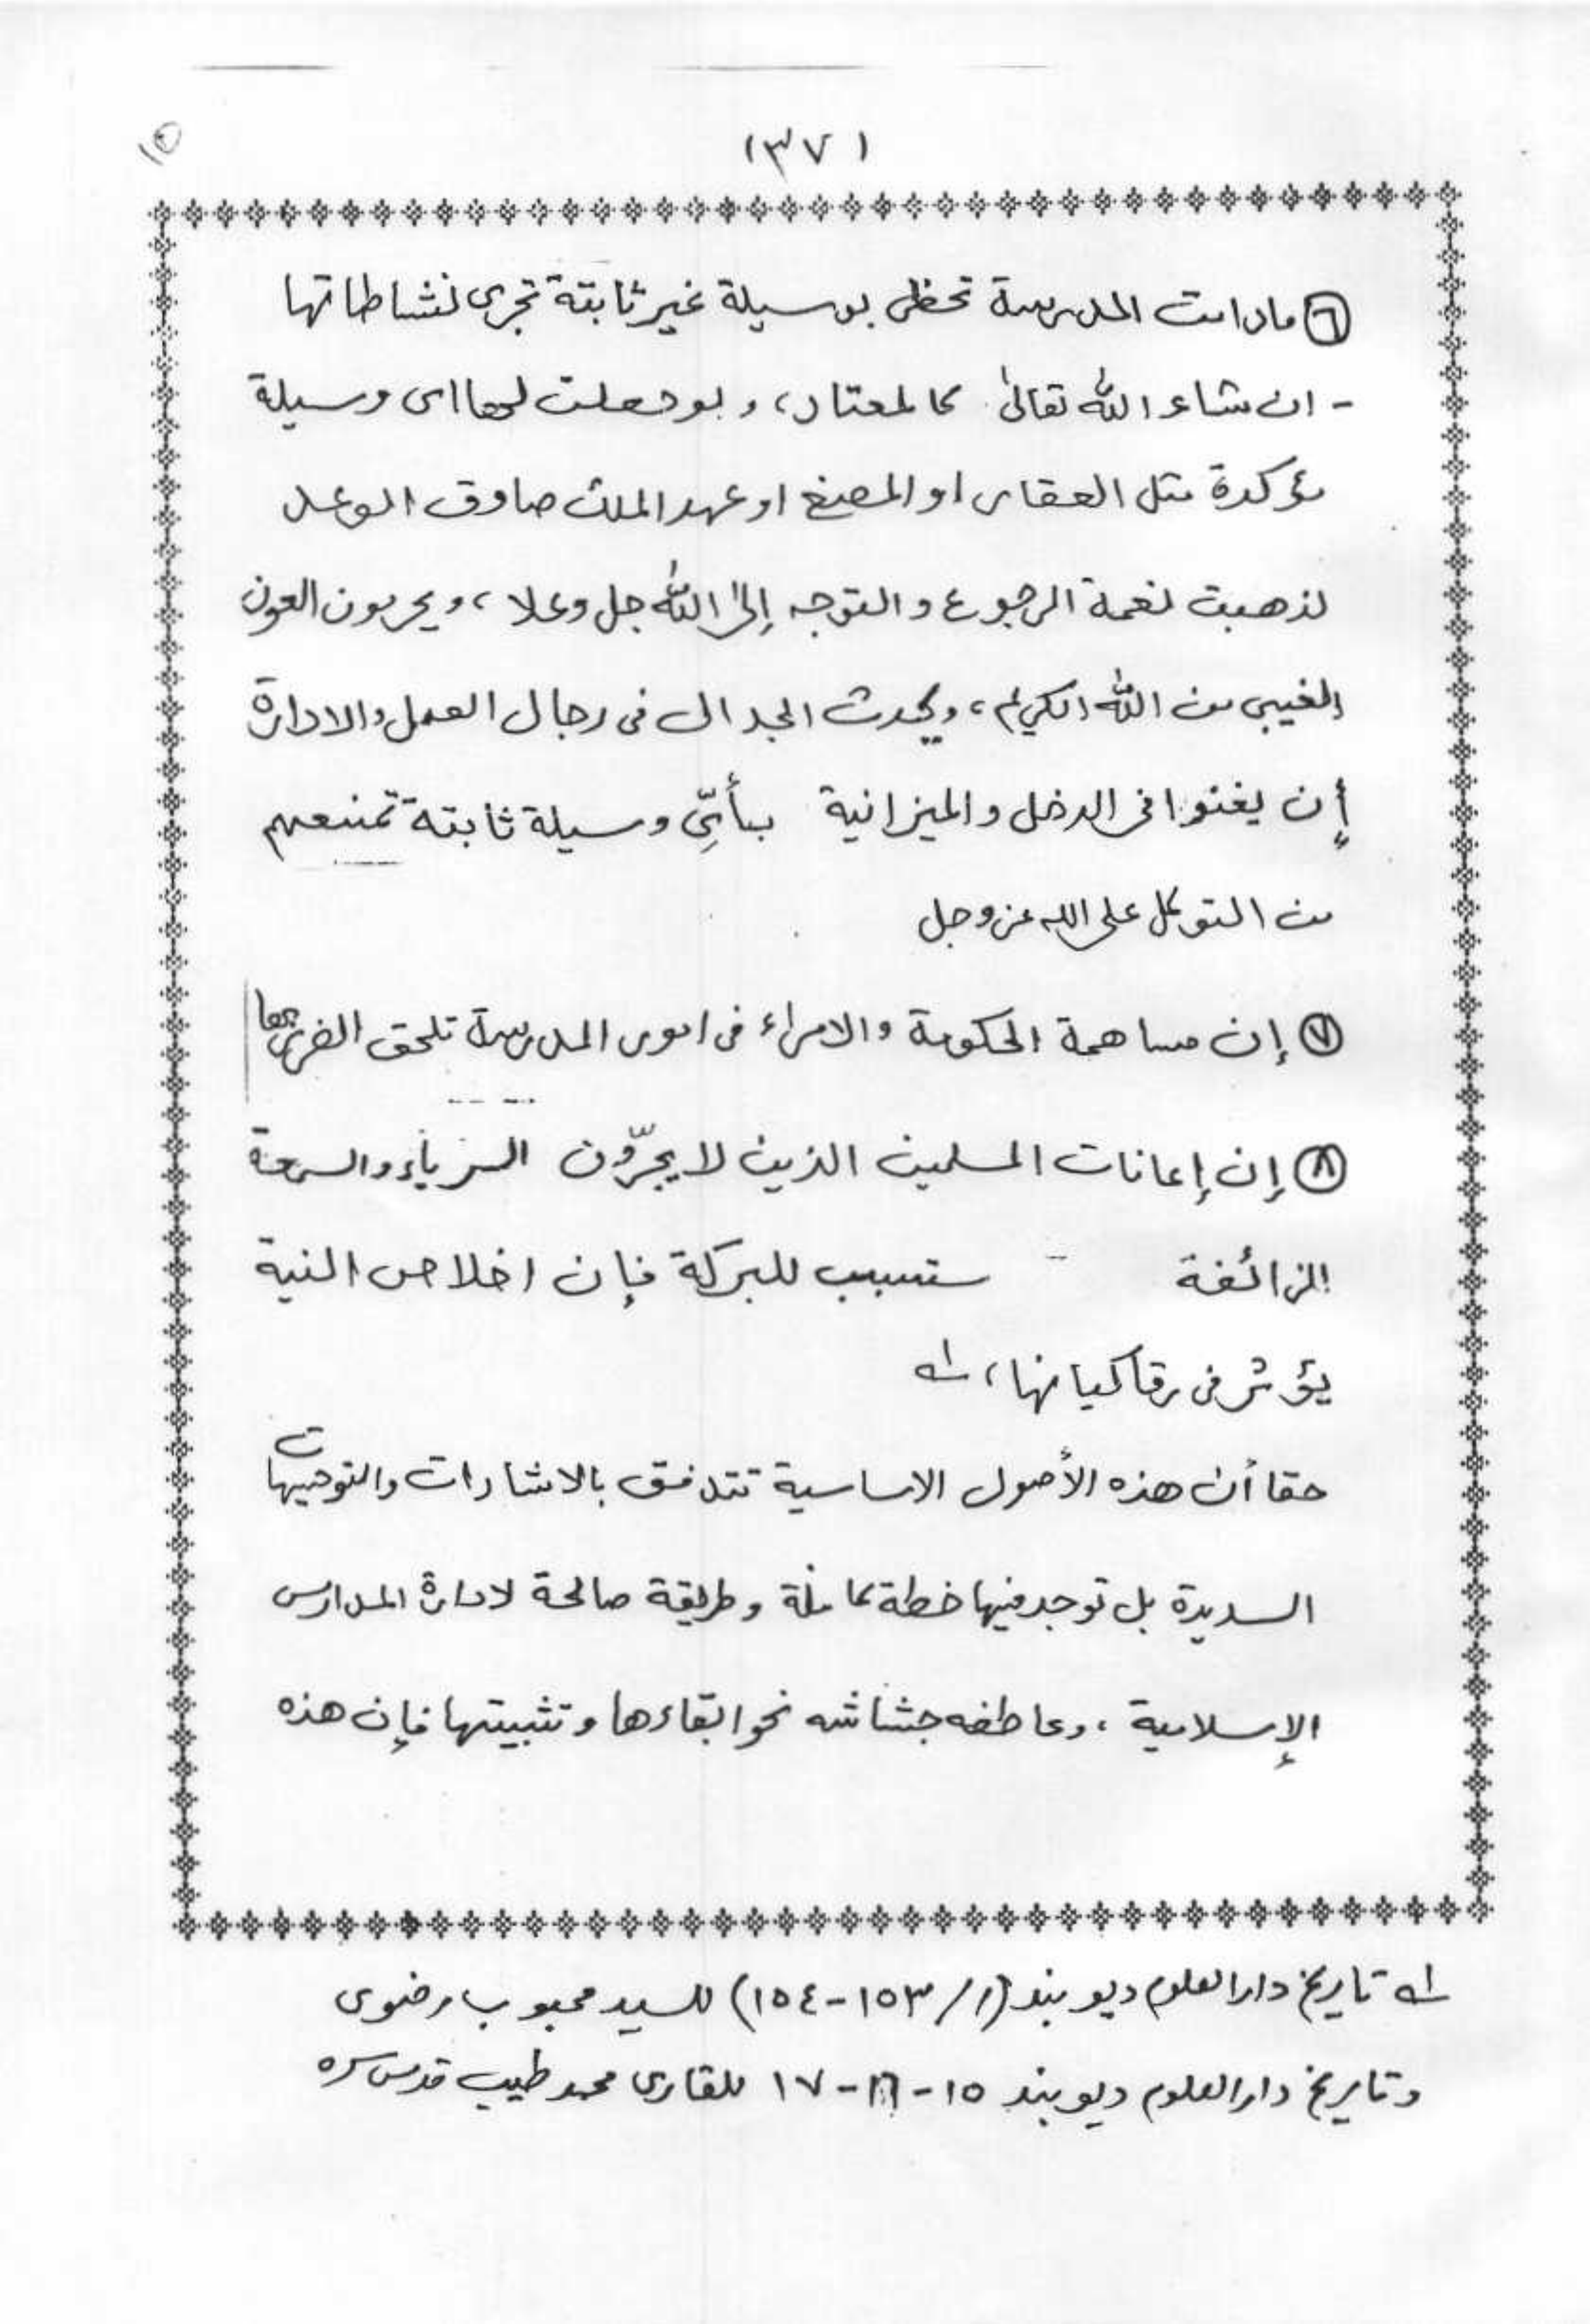 (٣٧)
٦ مادامت المدرسة تحظى بوسيلة غير ثابتة تجرى نشاطاتها
- ان شاء الله تعالىٰ كالمعتاد، ولو جعلت لها اى وسيلة
مؤكدة مثل العقار او المصنع او عهد الملك صادق الوعد
لذهبت نغمة الرجوع والتوجه إلىٰ الله جل وعلا، ويحرمون العون
الغيبى من الله الكريم، ويحدث الجدال فى رجال العمل والادارة
إن يغنوا فى الدخل والميزانية بأيِّ وسيلة ثابتة تمنعهم
من التوكل على الله عز وجل
٧ إن مساهمة الحكومة والامراء فى امور المدرسة تلحق الضرر بها
٨ إن إعانات المسلمين الذين لا يجرّون الرياء والسمعة
الزائفة ستسبب للبركة فإن اخلاص النية
يؤثر فى رقا كيانها، لـه
حقا أن هذه الأصول الاساسية تتدفق بالاشارات والتوجيهات
السديدة بل توجد فيها خطة كاملة وطريقة صالحة لادارة المدارس
الإسلامية، وعاطفه جشاشه نحو ابقاءها وتثبيتها فإن هذه
لـه تاريخ دار العلوم ديوبند (١/ ١٥٣-١٥٤) للسيد محبوب رضوى
وتاريخ دار العلوم ديوبند ١٥-١٦-١٧ للقارى محمد طيب قدس سره